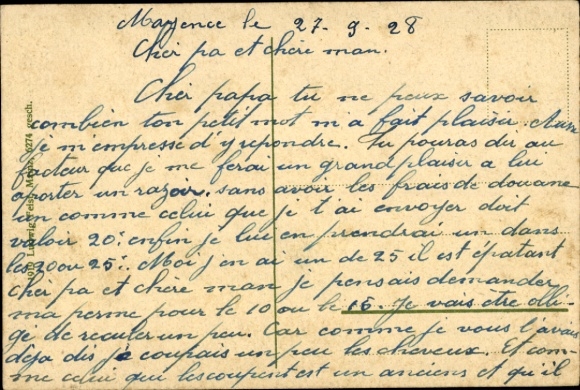 Mayence le 27-9-28
Cher pa et chere man.
Cher papa tu ne peux savoir
combien ton petit mot m a fait plaisir. Aussi
je m empresse d'y repondre. Tu pouras dir au
facteur que je me ferai un grand plaisir a lui
aporter un razoir. sans avoir les frais de douane
un comme celui que je t ai envoyer doit
valoir 20. enfin je lui en prendrai un dans
les 20 ou 25. Moi j en ai un de 25 il est épatant
Cher pa et chere man je pensais demander
ma perme pour le 10 ou le 15. Je vais être obli-
gé de reculer un peu. Car comme je vous l'avais
deja dis je coupais un peu les cheveux. Et com-
me celui qui les coupent est un anciens et qu'il
6274 gesch.